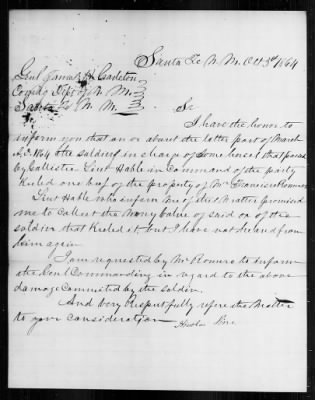 Santa Fe N. M. Oct 3d 1864
Genl James H Carleton
Comdg Dept of N. M.
Santa Fe N. M.
Sir
I have the honor to
inform you that on or about the latter part of March
A.D. 1864 the soldiers in charge of some horses that passed
by Gallisteo Lieut Hable in Command of the party
Killed one beef of the property of Mr Francisco Romero
Lieut Hable who inform me of the Matter promised
me to Collect the Mony Value of said ox of the
soldier that Killed it, but I have not heard from
him again
I am requested by Mr Romero to inform
the Genl Commanding in regard to the above
damage Committed by the soldier.
And Very Respectfully refere the Matter
to your Consideration
Nicolas Pino